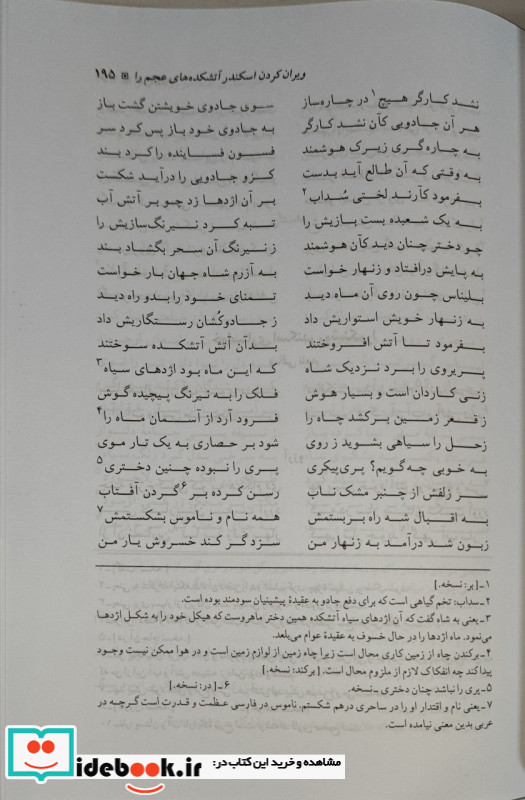 ویران کردن اسکندر آتشکده‌های عجم را ▣ ۱۹۵
نشد کارگر هیچ۱ در چاره‌ساز سوی جادوی خویشتن گشت باز
هر آن جادویی کآن نشد کارگر به جادوی خود باز پس کرد سر
به چاره‌گری زیرک هوشمند فسون فساینده را کرد بند
به وقتی که آن طالع آید بدست کزو جادویی را درآید شکست
بفرمود کآرند لختی سُداب۲ بر آن اژدها زد چو بر آتش آب
به یک شعبده بست بازیش را تبه کرد نیرنگ‌سازیش را
چو دختر چنان دید کآن هوشمند ز نیرنگ آن سحر بگشاد بند
به پایش درافتاد و زنهار خواست به آزرم شاه جهان بار خواست
بلیناس چون روی آن ماه دید تمنای خود را بدو راه دید
به زنهار خویش استواریش داد ز جادوکُشان رستگاریش داد
بفرمود تا آتش افروختند بدآن آتش آتشکده سوختند
پریروی را برد نزدیک شاه که این ماه بود اژدهای سیاه۳
زنی کاردان است و بسیار هوش فلک را به نیرنگ پیچیده گوش
ز قعر زمین برکشد چاه را فرود آرد از آسمان ماه را۴
زحل را سیاهی بشوید ز روی شود بر حصاری به یک تار موی
به خوبی چه گویم؟ پری‌پیکری پری را نبوده چنین دختری۵
سر زلفش از چنبر مشک ناب رسن کرده بر۶ گردن آفتاب
به اقبال شه راه بربستمش همه نام و ناموس بشکستمش۷
زبون شد درآمد به زنهار من سزد گر کند خسروش یار من
۱-[بر: نسخه.]
۲-سداب: تخم گیاهی است که برای دفع جادو به عقیدهٔ پیشینیان سودمند بوده است.
۳-یعنی به شاه گفت که آن اژدهای سیاه آتشکده همین دختر ماهروست که هیکل خود را به شکل اژدها
می‌نمود. ماه اژدها را در حال خسوف به عقیدهٔ عوام می‌بلعد.
۴-برکندن چاه از زمین کاری محال است زیرا چاه زمین از لوازم زمین است و در هوا ممکن نیست وجود
پیداکند چه انفکاک لازم از ملزوم محال است. [برکند: نسخه.]
۵-پری را نباشد چنان دختری -نسخه. ۶-[در: نسخه.]
۷-یعنی نام و اقتدار او را در ساحری درهم شکستم. ناموس در فارسی عظمت و قدرت است گرچه در
عربی بدین معنی نیامده است.
مشاهده و خرید این کتاب در:
idebook.ir